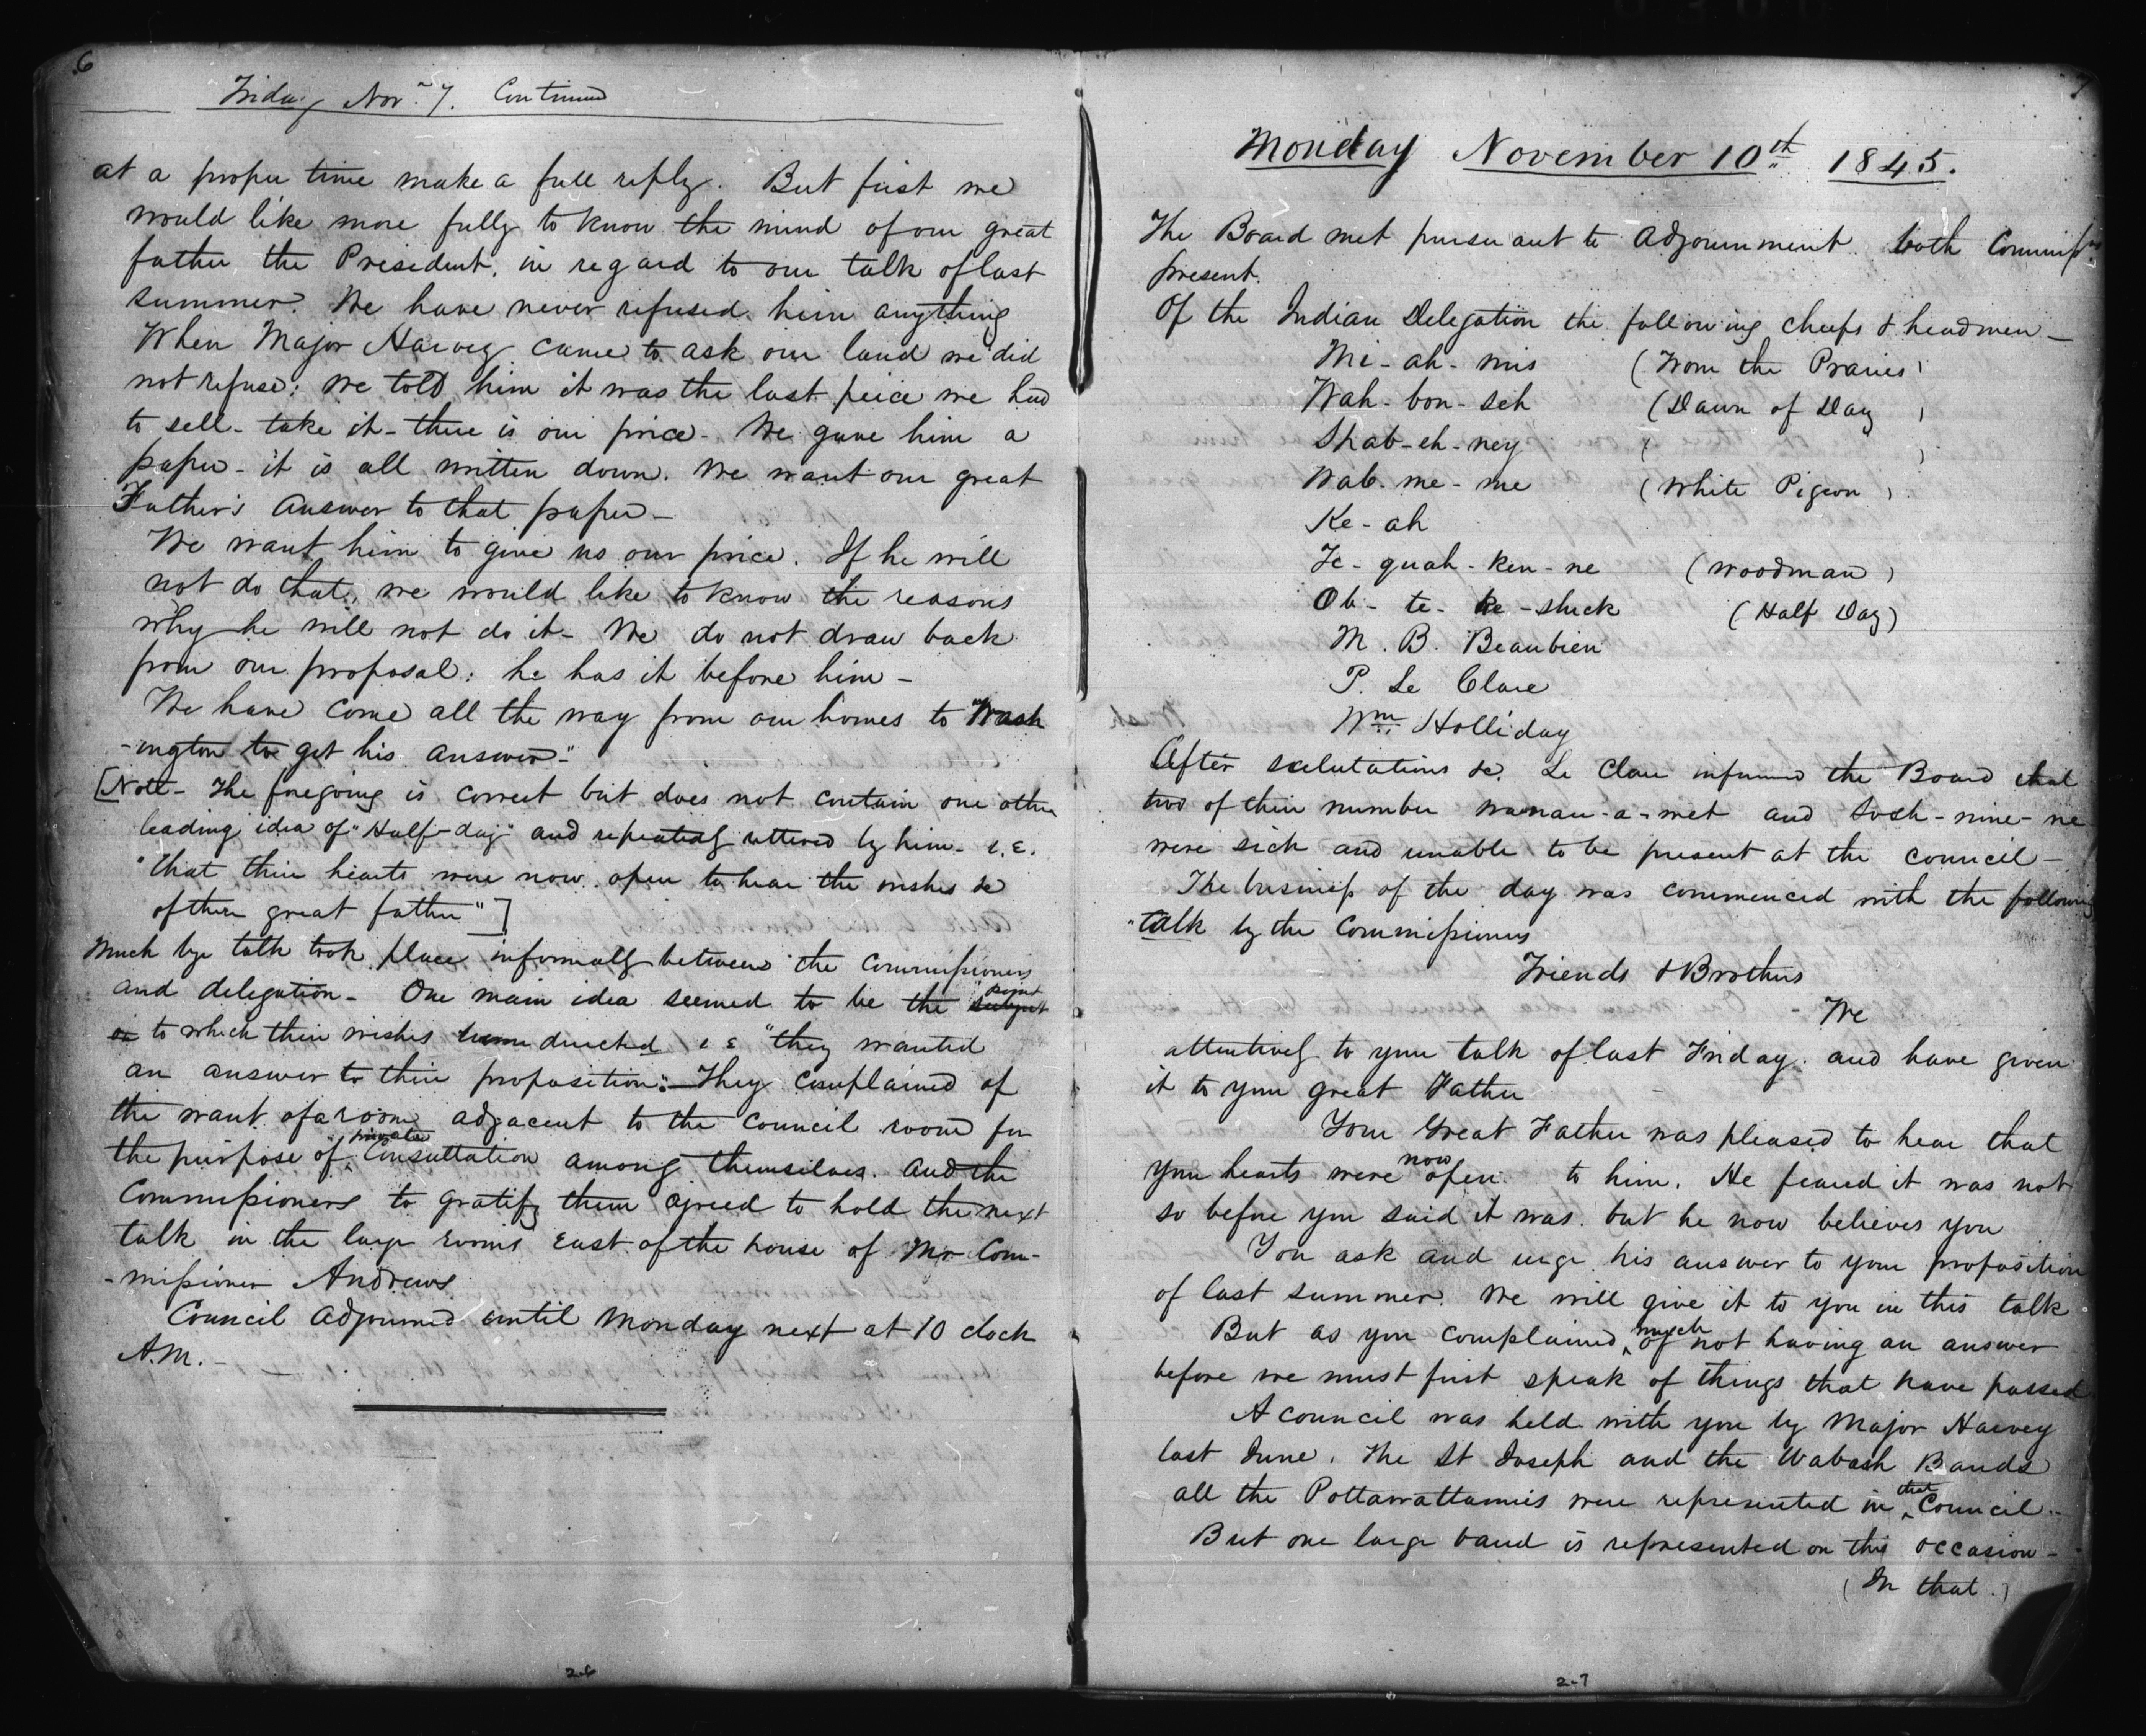 6
Friday Nov. 7. Continued
at a proper time make a full reply. But first we
would like more fully to know the mind of our great
father the President, in regard to our talk of last
summer. We have never refused him anything
When Major Harvey came to ask our land we did
not refuse: We told him it was the last peice we had
to sell - take it - there is our price - We gave him a
paper - it is all written down. We want our great
Father's answer to that paper -
We want him to give us our price. If he will
not do that, we would like to know the reasons
why he will not do it - We do not draw back
from our proposal: he has it before him -
We have come all the way from our homes to Wash
-ington to get his answer -"
[Note - The foregoing is correct but does not contain one other
leading idea of "Half-day" and repeatedly uttered by him - i.e.
"that their hearts were now open to hear the wishes &c
of their great father"]
Much bye talk took place informally between the Commissioners
and delegation - One main idea seemed to be the subject point
on to which their wishes directed i e "they wanted
an answer to their proposition." - They complained of
the want of a room adjacent to the Council room for
the purpose of private Consultation among themselves. and the
Commissioners to gratify them agreed to hold the next
talk in the large rooms East of the house of Mr Com-
-missioner Andrews
Council adjourned until Monday next at 10 clock
A.M. -
2-6
7
Monday November 10th 1845.
The Board met pursuant to adjournment both Commissrs
present.
Of the Indian Delegation the following cheifs & headmen -
Mi-ah-mis (From the Praries)
Wah-bon-seh (Dawn of Day )
Shab-eh-ney ( )
Wab-me-me (White Pigeon )
Ke-ah
Te-quah-ken-ne (Woodman )
Ob-te-ke-shick (Half Day)
M. B. Beaubien
P. Le Clare
Wm Holliday
After salutations &c. Le Clare informed the Board that
two of their number Wanau-a-met and Sosh-nine-ne
were sick and unable to be present at the council -
The business of the day was commenced with the following
"talk by the Commissioners
Friends & Brothers
- We
attentively to your talk of last Friday. and have given
it to your great Father
Your Great Father was pleased to hear that
your hearts were now open to him. He feared it was not
so before you said it was. but he now believes you
You ask and urge his answer to your proposition
of last summer. We will give it to you in this talk
But as you complained much of not having an answer
before we must first speak of things that have passed
A council was held with you by Major Harvey
last June. The St Joseph and the Wabash Bands
all the Pottawattamies were represented in that Council -
But one large band is represented on this occasion -
(In that.)
2-7